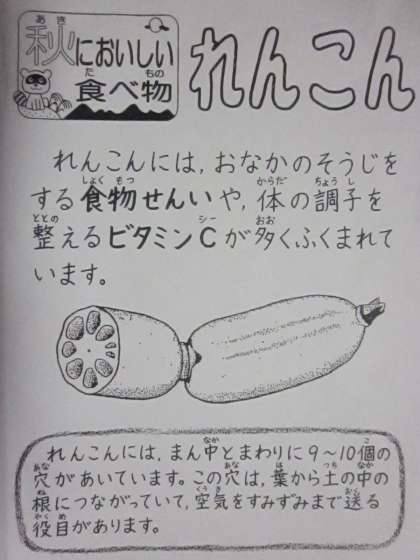 秋においしい
食べ物
れんこん
れんこんには,おなかのそうじを
する食物せんいや,体の調子を
整えるビタミンCが多くふくまれて
います。
れんこんには,まん中とまわりに9～10個の
穴があいています。この穴は,葉から土の中の
根につながっていて,空気をすみずみまで送る
役目があります。